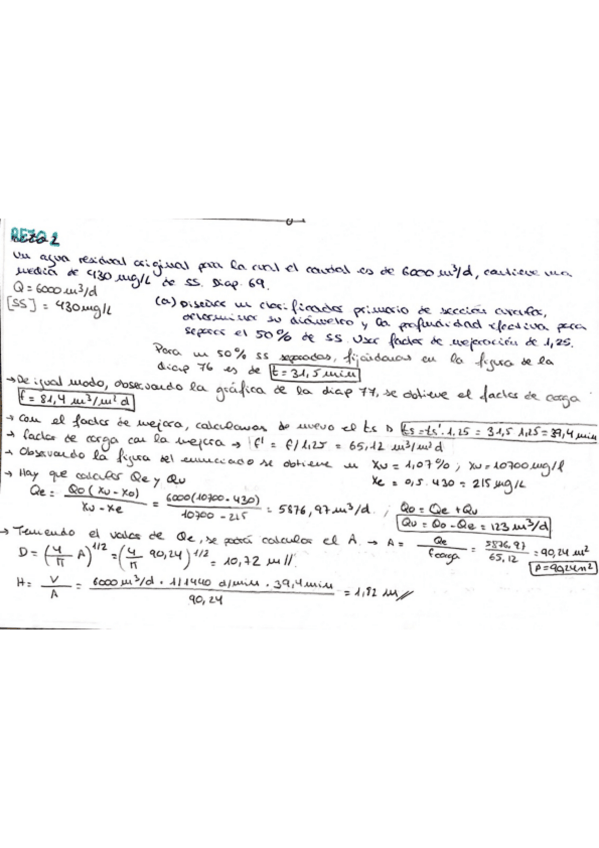 RETO 2
Un agua residual original para la cual el caudal es de 6000 m³/d, contiene una
media de 430 mg/L de SS. Diap. 69.
Q = 6000 m³/d
[SS] = 430 mg/L
(a) Diseñar un clarificador primario de sección circular,
determinar su diámetro y la profundidad efectiva para
separar el 50% de SS. Usar factor de mejoración de 1,25.
Para un 50% SS separados, fijándonos en la figura de la
diap 76 es de t = 31,5 min
→ De igual modo, observando la gráfica de la diap 77, se obtiene el factor de carga
f = 81,4 m³/m² d
→ Con el factor de mejora, calculamos de nuevo el ts → ts = ts'. 1,25 = 31,5 . 1,25 = 39,4 min
→ factor de carga con la mejora → f' = f/1,25 = 65,12 m³/m² d
→ Observando la figura del enunciado se obtiene un Xu = 1,07% ; Xu = 10700 mg/l
Xe = 0,5 . 430 = 215 mg/L
→ Hay que calcular Qe y Qu
Qe = Qo (Xu - Xo) / Xu - Xe = 6000 (10700 - 430) / 10700 - 215 = 5876,97 m³/d ; Qo = Qe + Qu
Qu = Qo - Qe = 123 m³/d
→ Teniendo el valor de Qe, se podrá calcular el A. → A = Qe / f carga = 5876,97 / 65,12 = 90,24 m²
A = 90,24 m²
D = (4/π A)^1/2 = (4/π 90,24)^1/2 = 10,72 m //
H = V/A = 6000 m³/d . 1/1440 d/min . 39,4 min / 90,24 = 1,82 m //